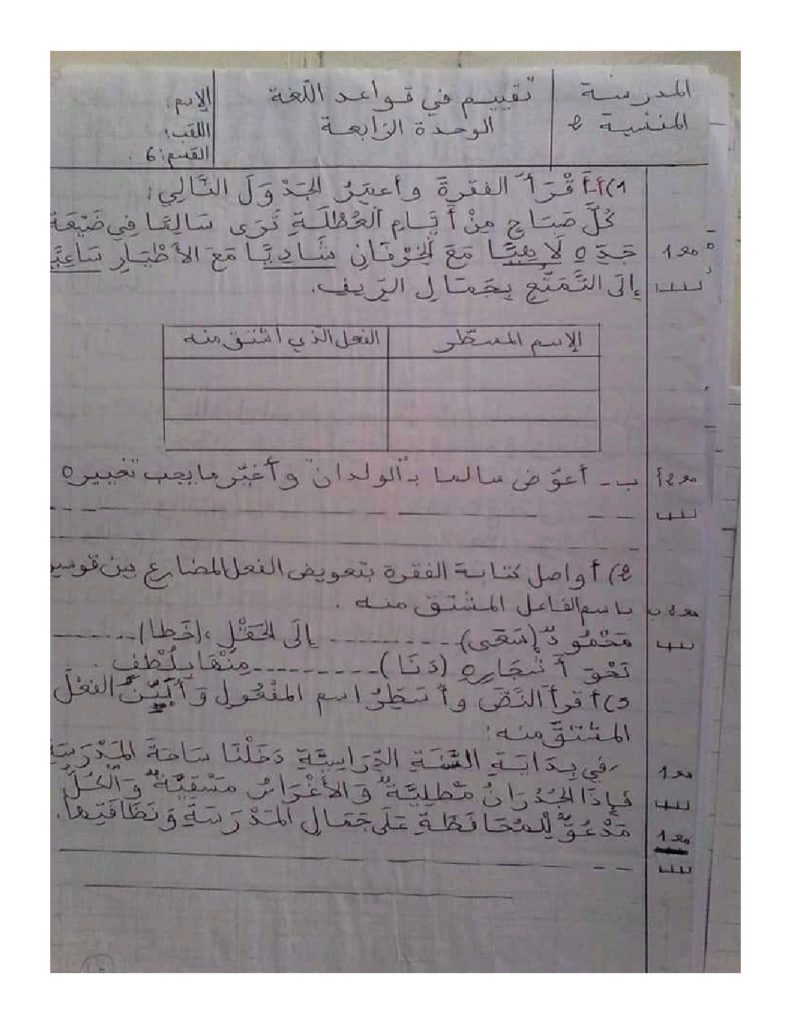 المدرسة
المنشية 2
تقييم في قواعد اللّغة
الوحدة الرّابعة
الإسم:
اللقب:
القسم: 6
1) أ- أَقْرَأُ الفقرةَ وأعمّرُ الجَدْوَلَ التَّالِي:
كُلَّ صَبَاحٍ مِنْ أَيَّامِ العُطْلَةِ تَرَى سَالِمًا فِي ضَيْعَةِ
جَدِّهِ لَاهِيًا مَعَ الخِرْفَانِ شَادِيًا مَعَ الأَطْيَارِ سَاعِيًا
إِلَى التَّمَتُّعِ بِجَمَالِ الرِّيفِ.
مع 1
الإسم المسطّر
الفعل الذي اشتق منه
ب- أعوّض سالما بـ "الولدان" وأغيّر ما يجب تغييره
مع 2 أ
2) أواصل كتابة الفقرة بتعويض الفعل المضارع بين قوسين
باسم الفاعل المشتق منه.
مع 2 ب
مَحْمُودٌ (سَعَى) --------- إِلَى الحَقْلِ، (خَطا) --------
نَحْوَ أَشْجَارِهِ (دَنَا) --------- مِنْهَا بِلُطْفٍ.
3) أقرأ النّصَّ وأسَطِّرُ اسم المفْعُولِ وَأُبَيِّنُ الفعْلَ
المشْتقَّ منه:
في بِدَايَةِ السَّنَةِ الدِّرَاسِيَّةِ دَخَلْنَا سَاحَةَ المَدْرَسَةِ
مع 1
فَإِذَا الجُدْرَانُ مَطْلِيَّةٌ وَالأَغْرَاسُ مَسْقِيَّةٌ وَالْكُلُّ
مَدْعُوٌّ لِلْمُحَافَظَةِ عَلَى جَمَالِ المَدْرَسَةِ وَنَظَافَتِهَا.
مع 1